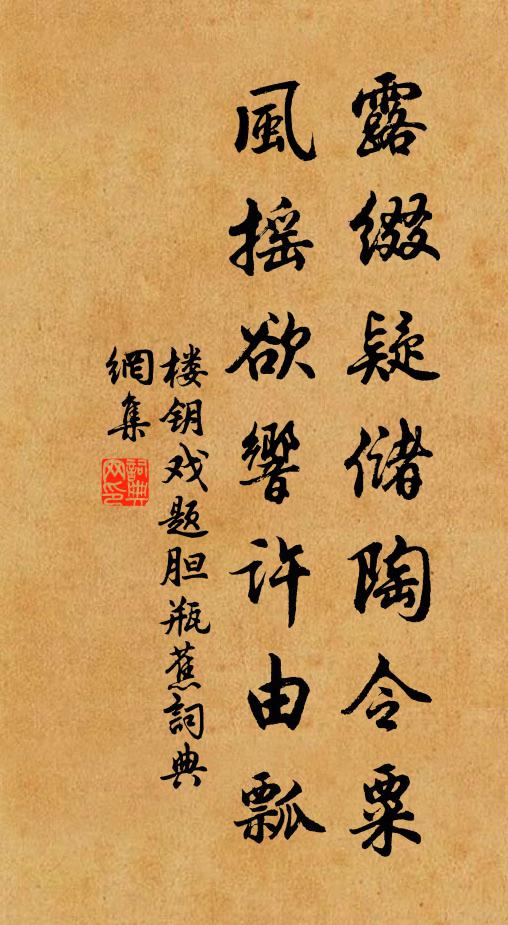 露缀疑储陶令粟
風摇欲響许由瓢
楼钥戏题胆瓶蕉詞典
網集
詞典
網印